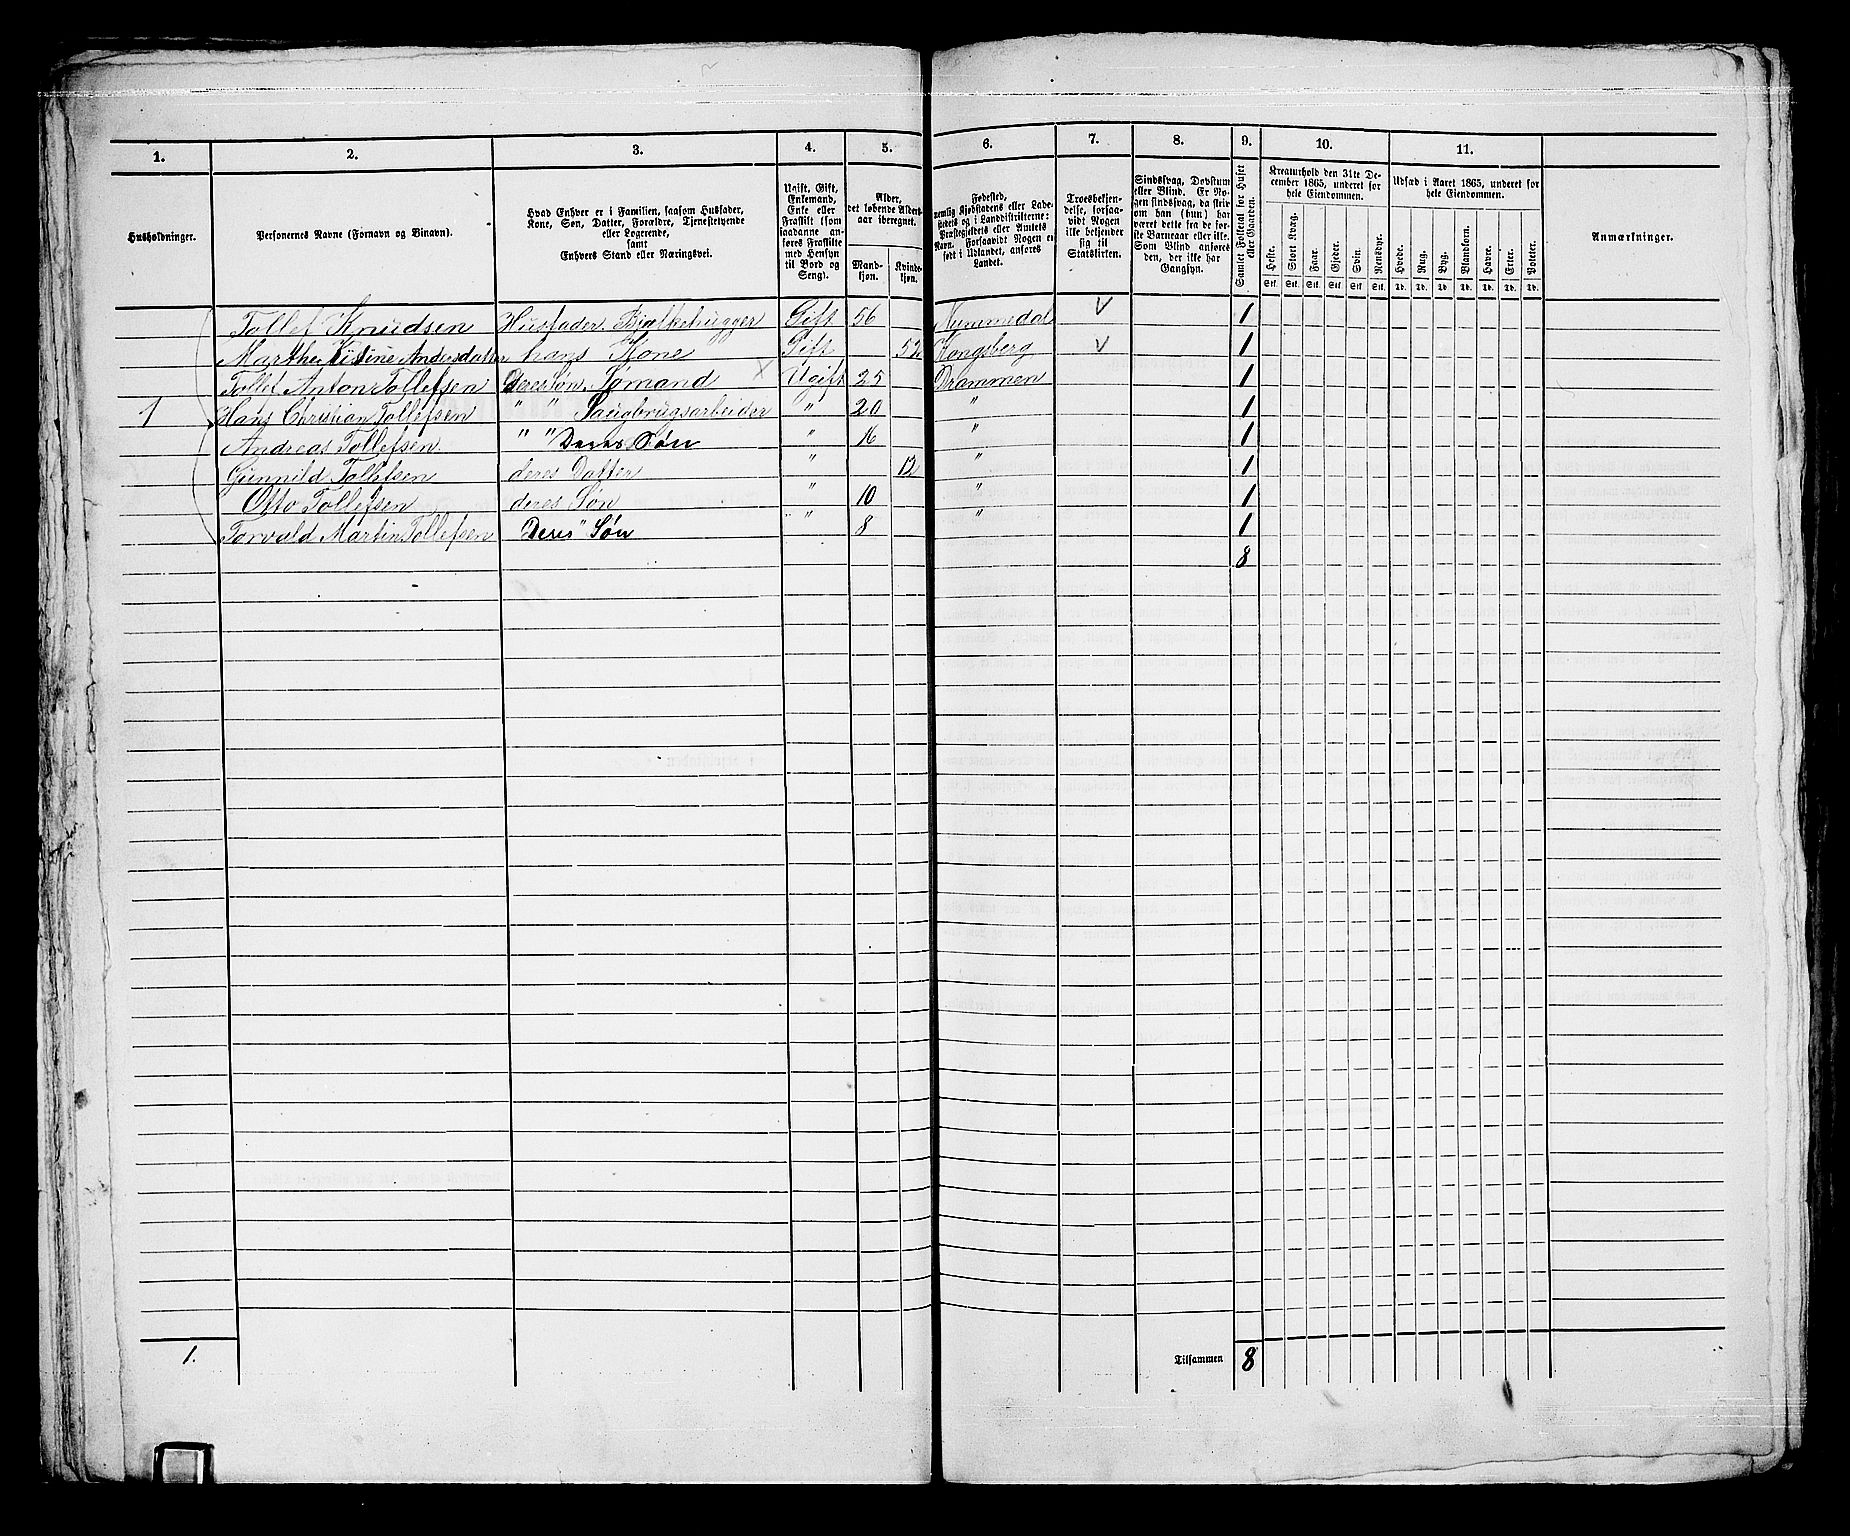 1. 2. 3. 4. 5. 6. 7. 8. 9. 10. 11.
Husholdninger.
Personernes Navne (Fornavn og Binavn).
Hvad Enhver er i Familien, saasom Husfader,
Kone, Søn, Datter, Forældre, Tjenestetyende
eller Logerende,
samt
Enhvers Stand eller Næringsvei.
Ugift, Gift,
Enkemand,
Enke eller
Fraskilt (som
saadanne an-
føres Fraskilte
med Hensyn
til Bord og
Seng).
Alder,
det løbende Alders-
aar iberegnet.
Mand-
kjøn.
Kvinde-
kjøn.
Fødested,
nemlig Kjøbstadens eller Lade-
stedets og i Landdistrikterne:
Præstegjeldets eller Amtets
Navn. Forsaavidt Nogen er
født i Udlandet, anføres
Landet.
Troesbekjen-
delse, forsaa-
vidt Nogen
ikke bekjender
sig til
Statskirken.
Sindssvag, Døvstum
eller Blind. Er No-
gen sindssvag, da skri-
ves om han (hun) har
været dette fra de før-
ste Barneaar eller ikke.
Som Blind anføres
den, der ikke har
Gangsyn.
Samlet Folketal for Huset
eller Gaarden.
Kreaturhold den 31te De-
cember 1865, underet for
hele Eiendommen.
Heste. Stort Kvæg. Faar. Gjeder. Svin. Rensdyr.
Stk. Stk. Stk. Stk. Stk. Stk.
Udsæd i Aaret 1865, underet for
hele Eiendommen.
Hvede. Rug. Byg. Blandkorn. Havre. Erter. Poteter.
Td. Td. Td. Td. Td. Td. Td.
Anmærkninger.
Tollef Knudsen Husfader. Bjelkehugger Gift 56 Nummedal V 1
Marthe Kistine Andersdatter hans Kone Gift 52 Kongsberg V 1
Tollef Anton Tollefsen deres Søn. Sømand X Ugift 25 Drammen 1
1 Hans Christian Tollefsen " " Saugbrugsarbeider " 20 " 1
Andreas Tollefsen. " " Deres Søn " 16 " 1
Gunnild Tollefsen deres Datter " 12 " 1
Otto Tollefsen deres Søn " 10 " 1
Torvald Martin Tollefsen Deres " Søn " 8 " 1
8
1. Tilsammen 8